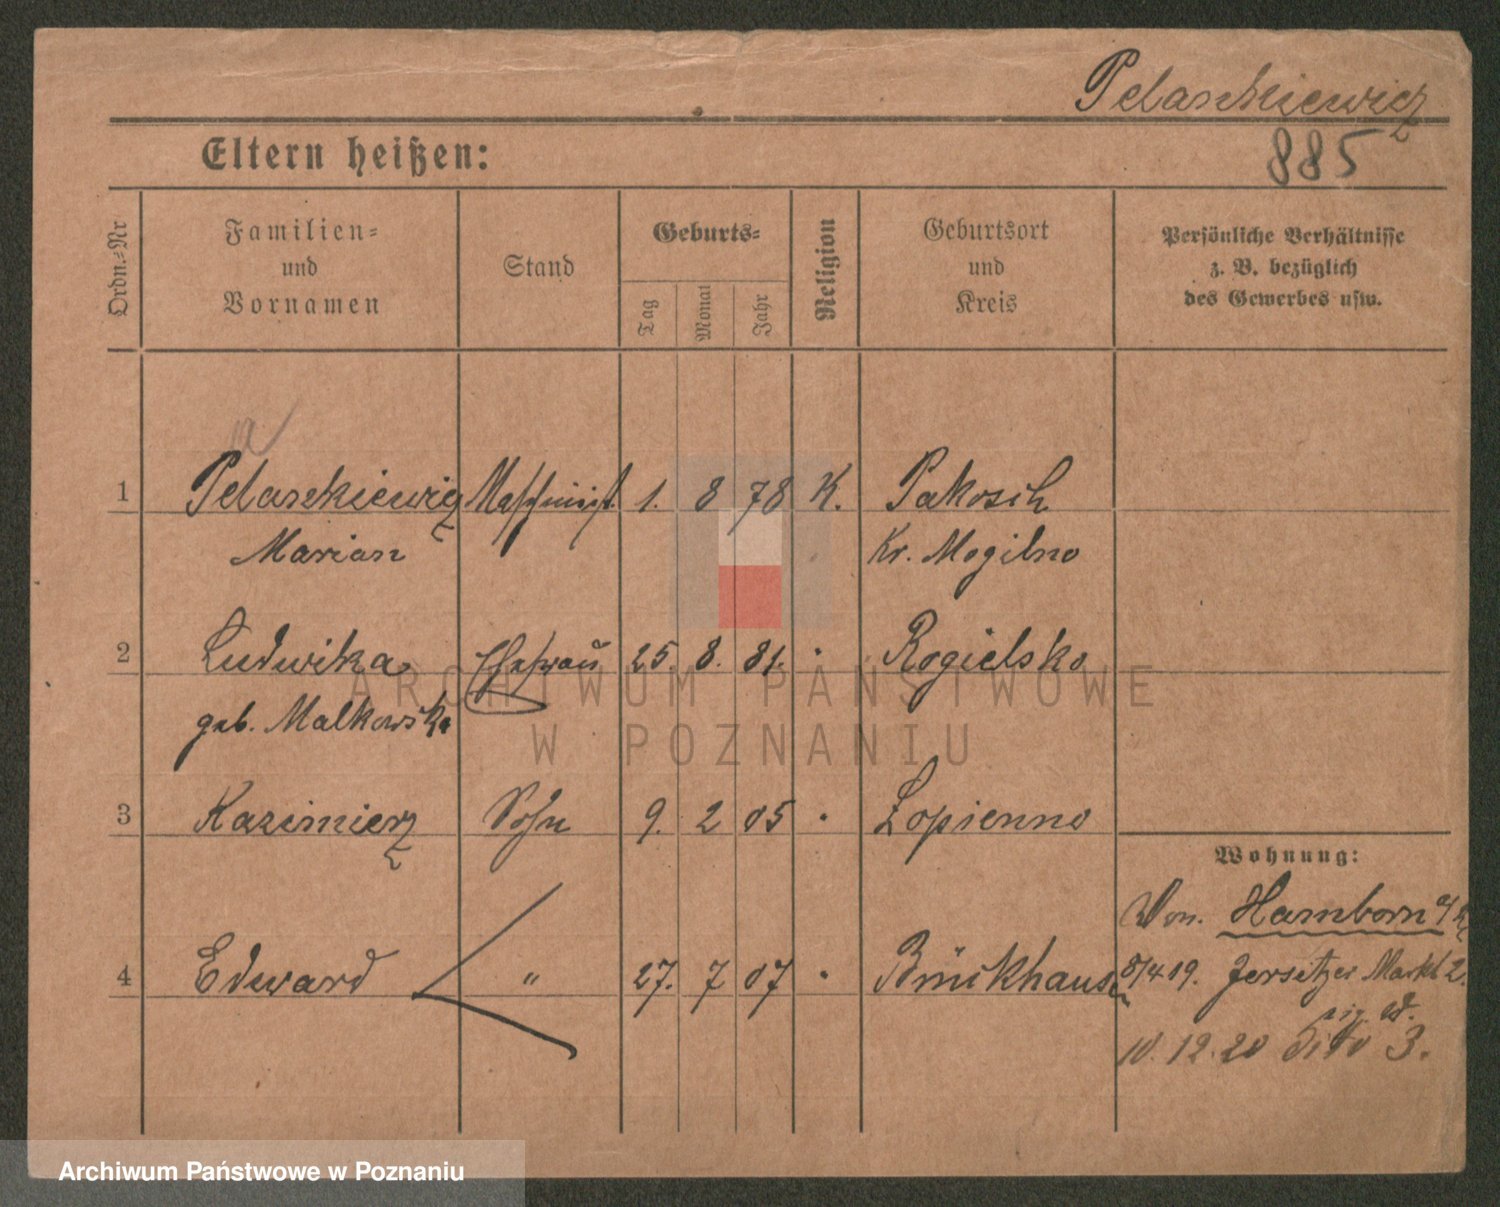 Pelaszkiewicz
885
Eltern heißen:
Ordn.-Nr
Familien-
und
Vornamen
Stand
Geburts-
Tag
Monat
Jahr
Religion
Geburtsort
und
Kreis
Persönliche Verhältnisse
z. B. bezüglich
des Gewerbes usw.
1 Pelaszkiewicz Maschinist. 1. 8 78 K. Pakosch
Marian Kr. Mogilno
2 Ludwika Ehefrau 25. 8. 81. " Rogielsko
geb. Malkowska
3 Kazimierz Sohn 9. 2 05 " Lopienno
Wohnung:
Von. Hamborn a/Rh
4 Edward " 27. 7 07 " Brückhausen
8/4 19. Jersitzer Markt 2.
eig. W.
10.12.20 dito 3.
ARCHIWUM PAŃSTWOWE
W POZNANIU
Archiwum Państwowe w Poznaniu